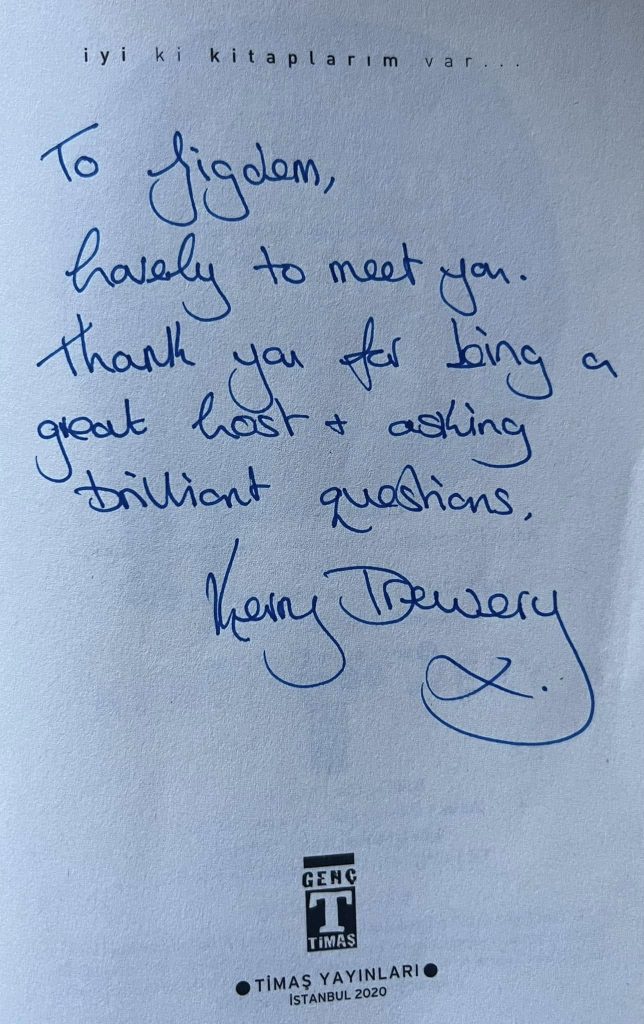 iyi ki kitaplarım var...
To Jigdem,
Lovely to meet you.
Thank you for being a
great host + asking
brilliant questions.
Kerry Drewery
x.
GENÇ
T
TİMAŞ
TİMAŞ YAYINLARI
İSTANBUL 2020